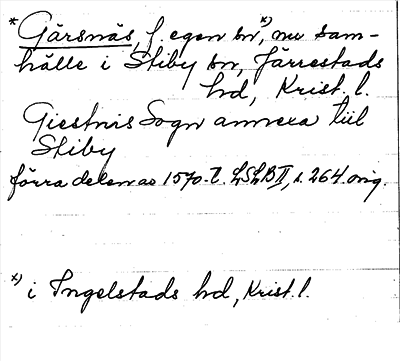 * Gärsnäs, f. egen sn *), nu sam-
hälle i Stiby sn, Järrestads
hd, Krist. l.
Giestnis Sogn annexa till
Stiby
förra delen av 1570-t. LSLB II, s. 264. orig.
*) i Ingelstads hd, Krist. l.